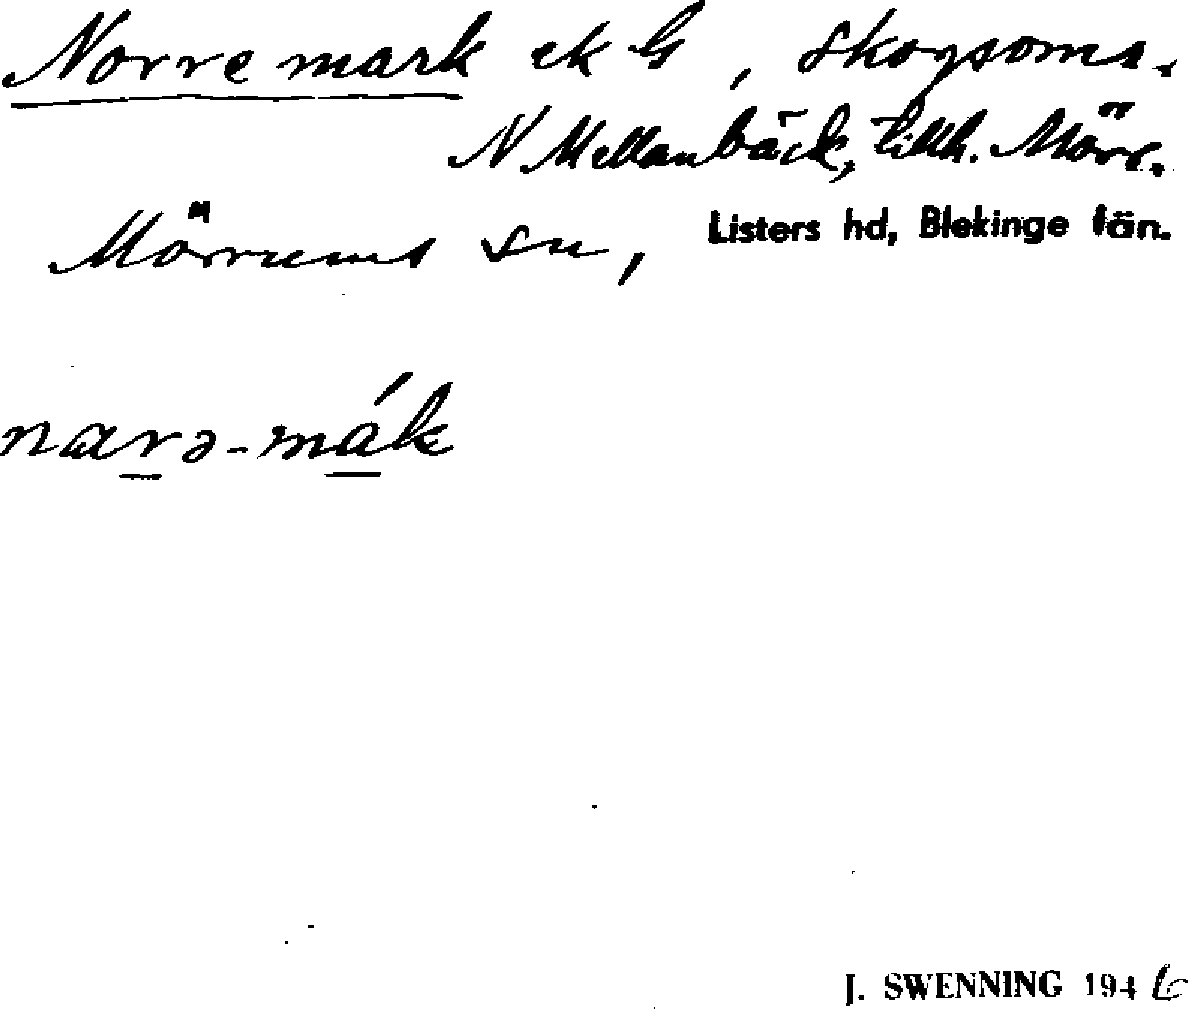 Norremark ek bl, skogsomr.
N Mellanbäck, tillh. Mörr.
Mörrums sn, Listers hd, Blekinge län.
narə-mák
J. SWENNING 1946